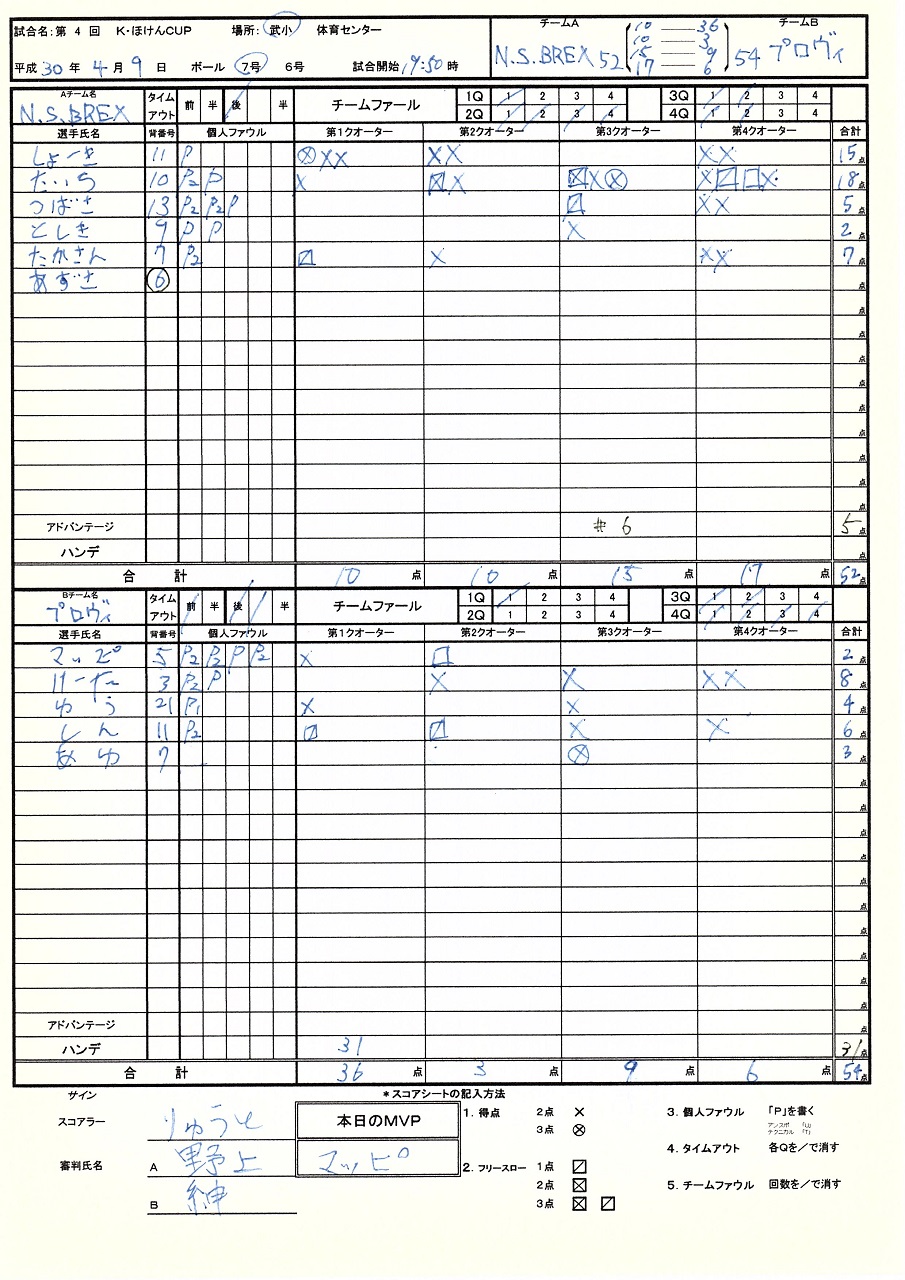 試合名:第 4 回 K・ほけんCUP 場所: 武小 体育センター
平成 30 年 4 月 9 日 ボール 7号 6号 試合開始 19:50 時
チームA チームB
N.S.BREX 52 54 プロヴィ
10 36
10 3
15 9
17 6
Aチーム名 N.S.BREX タイムアウト 前 半 後 半 チームファール 1Q 1 2 3 4 3Q 1 2 3 4
2Q 1 2 3 4 4Q 1 2 3 4
選手氏名 背番号 個人ファウル 第1クオーター 第2クオーター 第3クオーター 第4クオーター 合計
しょーき 11 P 15点
たいち 10 P2 P 18点
つばさ 13 P2 P2 P 5点
としき 9 P P 2点
たかさん 7 P2 7点
あずさ 6 点
アドバンテージ #6 5点
ハンデ 点
合計 10 点 10 点 15 点 17 点 52点
Bチーム名 プロヴィ タイムアウト 前 半 後 半 チームファール 1Q 1 2 3 4 3Q 1 2 3 4
2Q 1 2 3 4 4Q 1 2 3 4
選手氏名 背番号 個人ファウル 第1クオーター 第2クオーター 第3クオーター 第4クオーター 合計
マッピ 5 P2 P2 P P2 2点
けーた 3 P2 P 8点
ゆう 21 P1 4点
しん 11 P2 6点
あゆ 7 3点
アドバンテージ 点
ハンデ 31 31点
合計 36 点 3 点 9 点 6 点 54点
サイン *スコアシートの記入方法
スコアラー りゅうと 本日のMVP マッピ
審判氏名 A 野上
B 紳
1. 得点 2点 ×
3点 ⊗
2. フリースロー 1点 ☐
2点 ☒
3点 ☒ ☐
3. 個人ファウル 「P」を書く
アンスポ 「U」
テクニカル 「T」
4. タイムアウト 各Qを/で消す
5. チームファウル 回数を/で消す